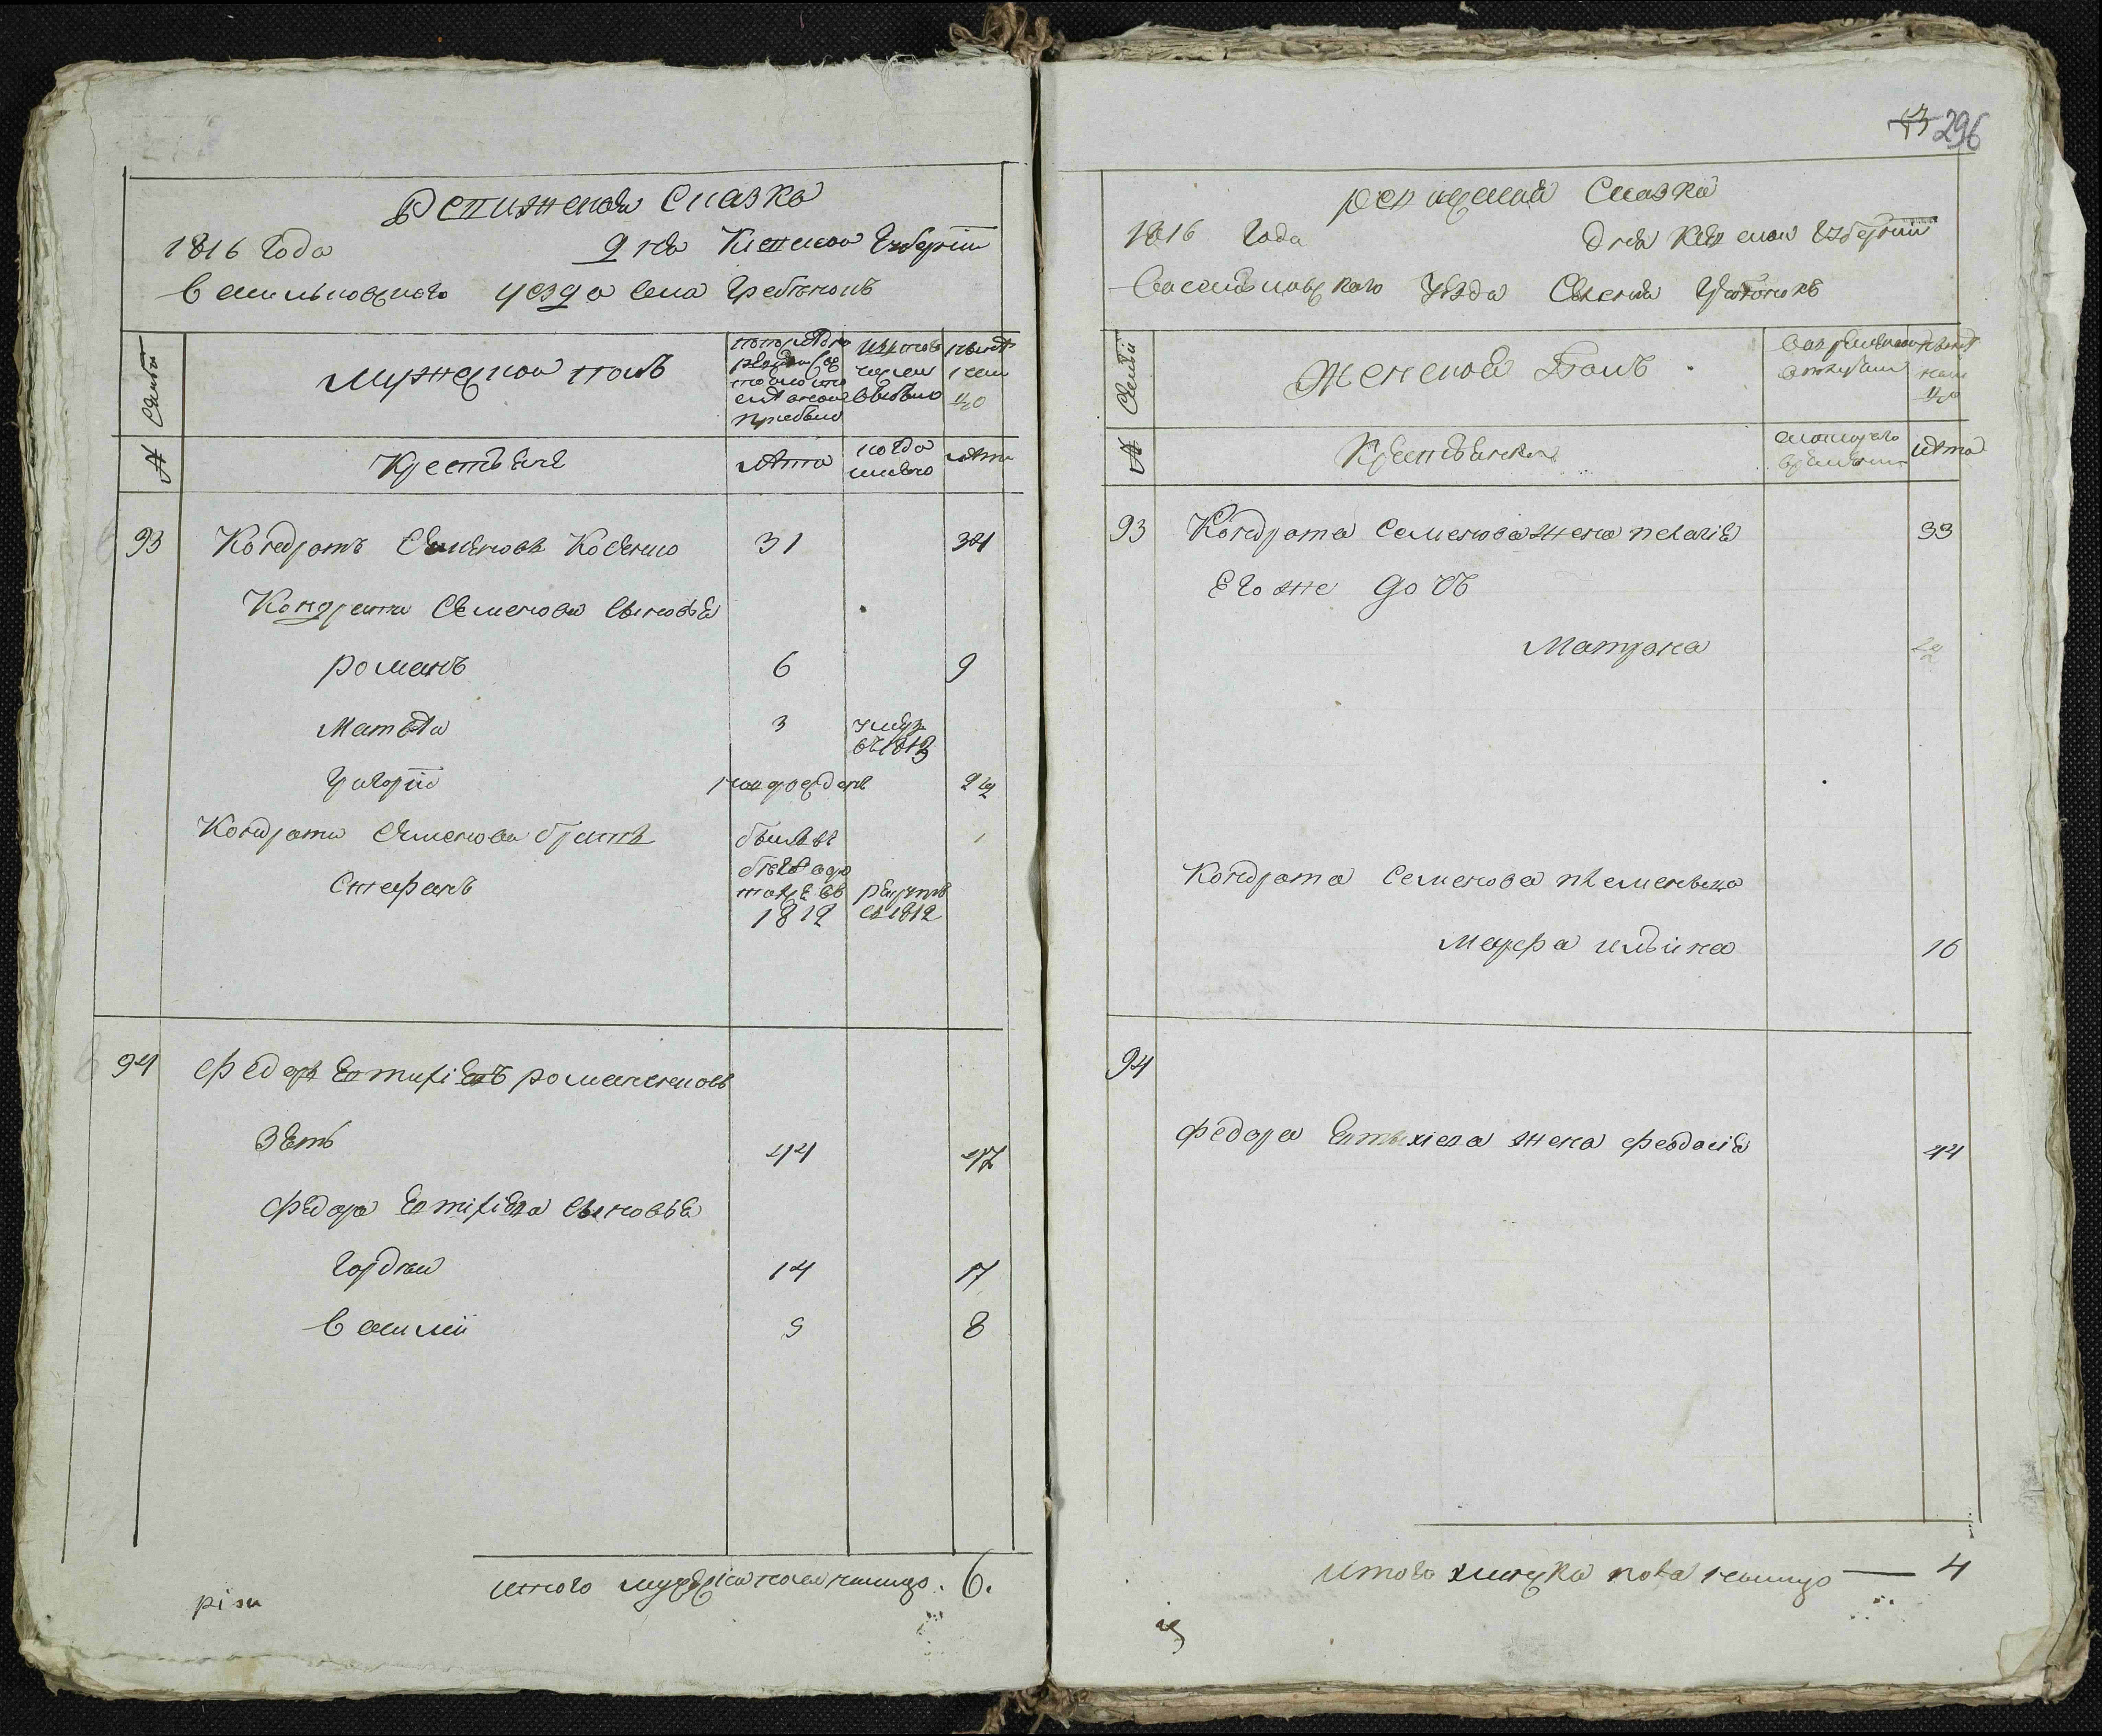 Ревижская Сказка
1816 Года дня Киевской Губернїи
Васильковского уезда Села Гребенокъ
Семьи
Мужеской полъ
Изтого числа выбыло
Ныне налицо
№
Крестьяне
лѣта
когда имянно
лѣта
93 Кондратъ Семеновъ Косенко 31 34
Кондрата Семенова Сыновья
романъ 6 9
Матвѣй 3 умер въ1813
Григорїй новорожденъ 2 1/2
Кондрата Семенова братъ
Стефанъ
1812
рекрутъ въ1812
94 Федоръ Евтихіевъ романенковъ
Зять 44 47
Федора Евтихіева Сыновья
Гордѣй 14 17
Василїй 5 8
итого мужеска пола налицо . 6.
296
ревижская Сказка
1816 Года дня Киевской Губернїи
Васильковского уѣзда Селенія Гребенокъ
Семьи
Женской Полъ
Вовременной отлучки
Ныне налицо
№
Крестьянки
скоторого времени
лѣта
93 Кондрата Семенова жена пелагія 33
Его же дочь
Матрона
Кондрата Семенова племенница
Марфа 16
94
Федора Евтихіева жена феодосія 44
Итого женска пола налицо — 4